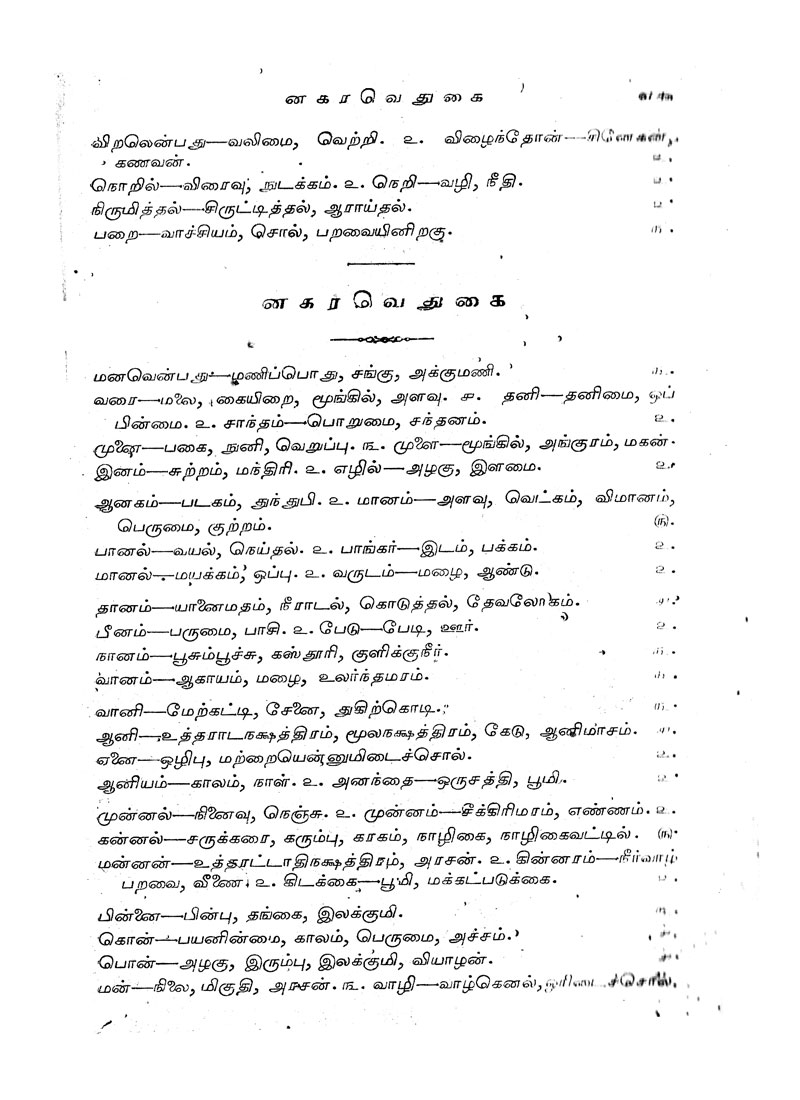 னகரவெதுகை
விறலென்பது—வலிமை, வெற்றி. ௨. விழைந்தோன்—சினேகன்,
கணவன். ௨.
நொறில்—விரைவு, நுடக்கம். ௨. நெறி—வழி, நீதி. ௨.
நிருமித்தல்—சிருட்டித்தல், ஆராய்தல். ௨.
பறை—வாச்சியம், சொல், பறவையினிறகு. ௩.
னகரவெதுகை
மனவென்பது—மணிப்பொது, சங்கு, அக்குமணி. ௩.
வரை—மலை, கையிறை, மூங்கில், அளவு. ௪. தனி—தனிமை, ஒப்
பின்மை. ௨. சாந்தம்—பொறுமை, சந்தனம். ௨.
முனை—பகை, நுனி, வெறுப்பு. ௩. முளை—மூங்கில், அங்குரம், மகன்.
இனம்—சுற்றம், மந்திரி. ௨. எழில்—அழகு, இளமை. ௨.
ஆனகம்—படகம், துந்துபி. ௨. மானம்—அளவு, வெட்கம், விமானம்,
பெருமை, குற்றம். ௫.
பானல்—வயல், நெய்தல். ௨. பாங்கர்—இடம், பக்கம். ௨.
மானல்—மயக்கம், ஒப்பு. ௨. வருடம்—மழை, ஆண்டு. ௨.
தானம்—யானைமதம், நீராடல், கொடுத்தல், தேவலோகம். ௪.
பீனம்—பருமை, பாசி. ௨. பேடு—பேடி, ஊர். ௨.
நானம்—பூசும்பூச்சு, கஸ்தூரி, குளிக்குநீர். ௩.
வானம்—ஆகாயம், மழை, உலர்ந்தமரம். ௩.
வானி—மேற்கட்டி, சேனை, துகிற்கொடி. ௩.
ஆனி—உத்தராடநக்ஷத்திரம், மூலநக்ஷத்திரம், கேடு, ஆனிமாசம். ௪.
ஏனை—ஒழிபு, மற்றையென்னுமிடைச்சொல். ௨.
ஆனியம்—காலம், நாள். ௨. அனந்தை—ஒருசத்தி, பூமி. ௨.
முன்னல்—நினைவு, நெஞ்சு. ௨. முன்னம்—சீக்கிரிமரம், எண்ணம். ௨.
கன்னல்—சருக்கரை, கரும்பு, கரகம், நாழிகை, நாழிகைவட்டில். ௫.
மன்னன்—உத்தரட்டாதிநக்ஷத்திரம், அரசன். ௨. கின்னரம்—நீர்வாழ்
பறவை, வீணை. ௨. கிடக்கை—பூமி, மக்கட்படுக்கை. ௨.
பின்னை—பின்பு, தங்கை, இலக்குமி. ௩.
கொன்—பயனின்மை, காலம், பெருமை, அச்சம். ௪.
பொன்—அழகு, இரும்பு, இலக்குமி, வியாழன். ௪.
மன்—நிலை, மிகுதி, அரசன். ௩. வாழி—வாழ்கெனல்,